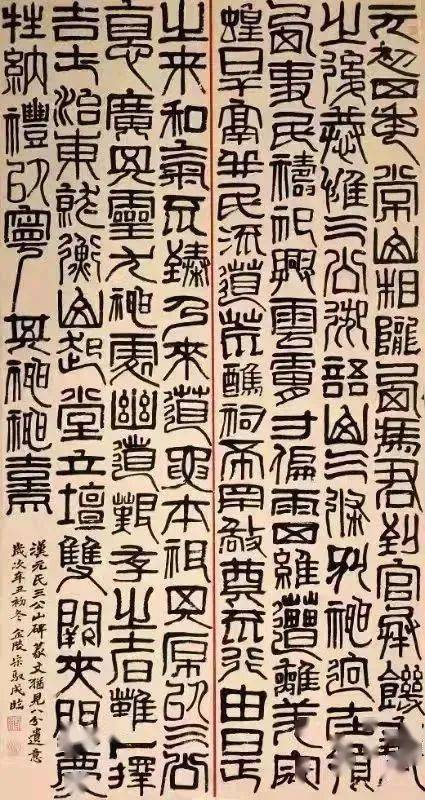 元初四年常山相隴西馮君到官承饑衰
之後惟三公御語山三條別神迥在領
西吏民禱祀興雲膚寸偏雨四維遭離羌寇
蝗旱鬲并民流道荒醮祠希罕敬奠不行由是
之來和氣不臻乃來道要本祖其原以三公
悳廣其靈尤神處幽道艱存之者難卜擇
吉土治東就衡山起堂立壇雙闕夾門薦
牲納禮以寧其神神熹
漢元氏三公山碑篆文猶見八分遺意
歲次辛丑初冬金陵馭成臨